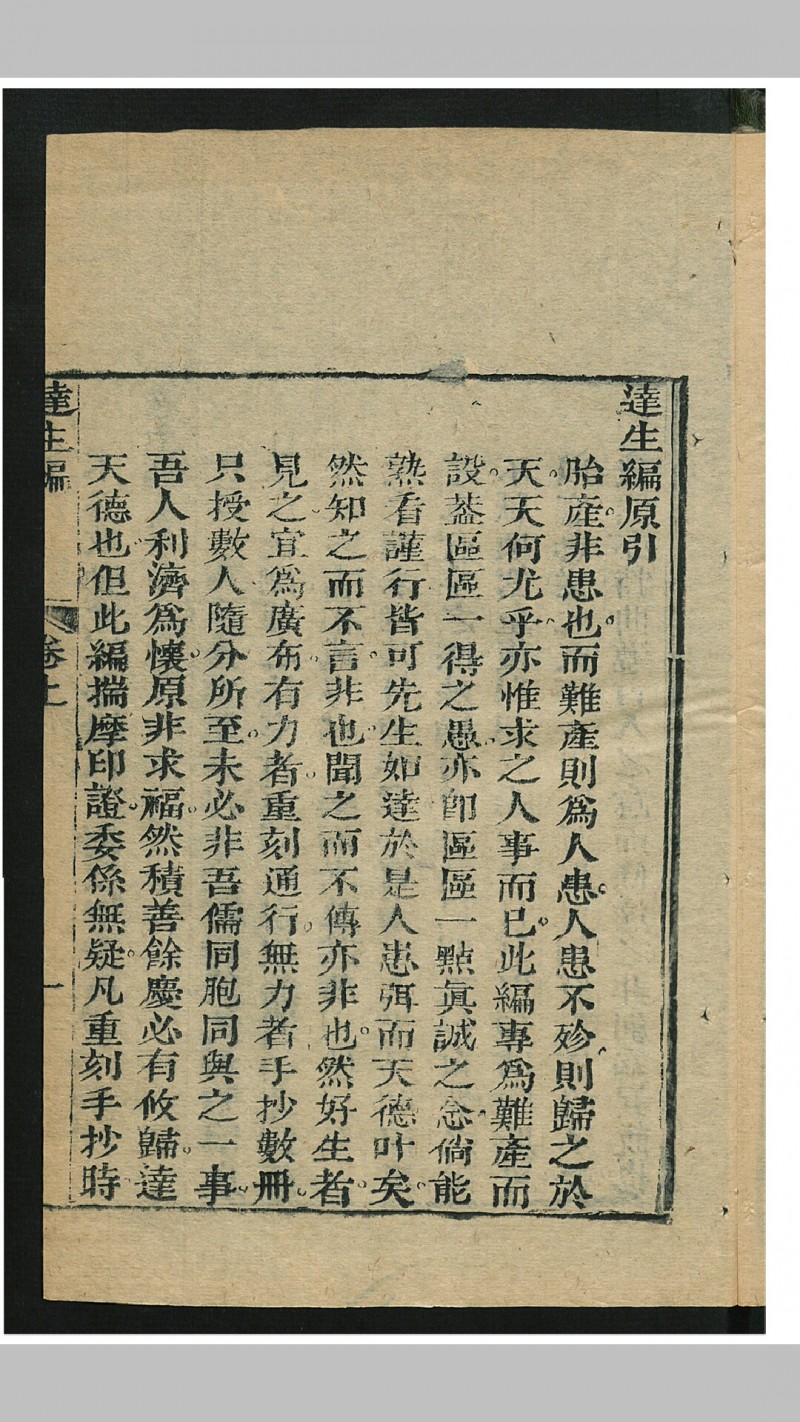 達生編原引
胎產非患也而難產則爲人患。人患不殄則歸之於
天。天何尤乎。亦惟求之人事而已。此編專爲難產而
設。葢區區一得之愚。亦卽區區一點眞誠之念。倘能
熟看謹行皆可先生如達。於是人患弭而天德叶矣。
然知之而不言。非也。聞之而不傳。亦非也。然好生者。
見之宜爲廣布。有力者。重刻通行。無力者。手抄數冊。
只授數人隨分所至。未必非吾儒同胞同與之一事。
吾人利濟爲懷。原非求福。然積善餘慶必有攸歸。達
天德也。但此編揣摩印證。委係無疑。凡重刻手抄時
達生編
卷上
一